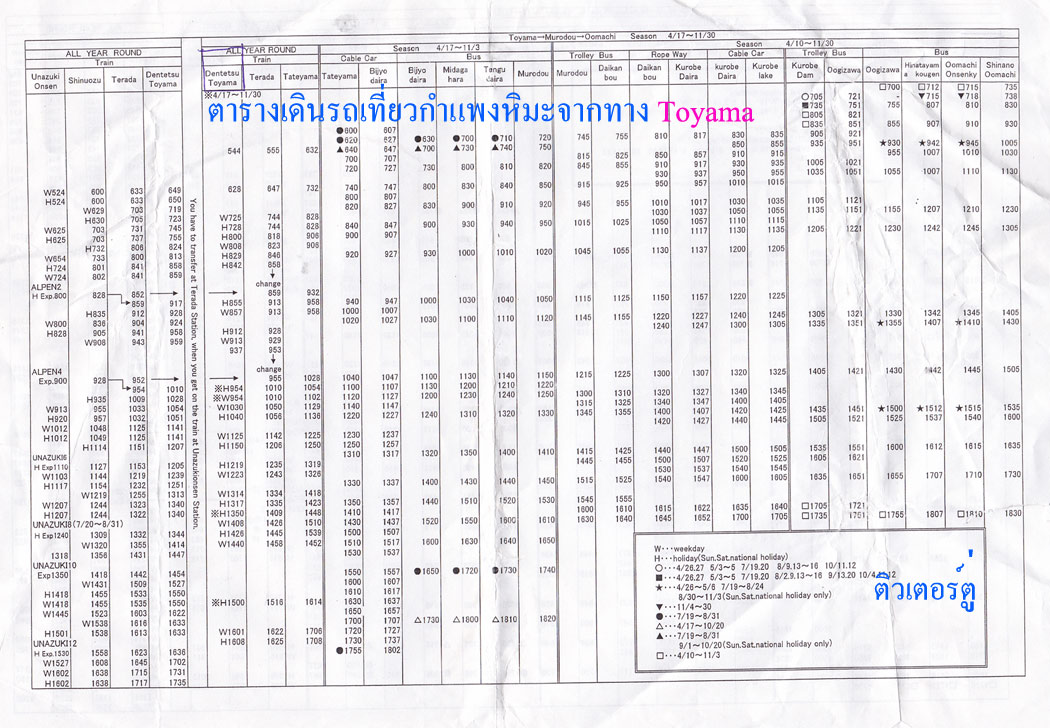 Toyama→Murodou→Oomachi Season 4/17～11/30
ALL YEAR ROUND ALL YEAR ROUND Season 4/17～11/3 Season 4/10～11/30
Train Train Cable Car Bus Trolley Bus Rope Way Cable Car Trolley Bus Bus
Unazuki Onsen Shinuozu Terada Dentetsu Toyama Dentetsu Toyama Terada Tateyama Tateyama Bijyo daira Bijyo daira Midaga hara Tengu daira Murodou Murodou Daikan bou Daikan bou Kurobe Daira kurobe Daira Kurobe lake Kurobe Dam Oogizawa Oogizawa Hinatayama kougen Oomachi Onsenky Shinano Oomachi
※4/17～11/30
ตารางเดินรถเที่ยวกำแพงหิมะจากทาง Toyama
□700 □712 □715 735
○705 721 - ▼715 ▼718 738
■735 751 755 807 810 830
□805 821
●600 607 □835 851 855 907 910 930
●620 627 ●630 ●700 ●710 720 745 755 810 817 830 835 905 921
544 555 632 ▲640 647 ▲700 ▲730 ▲740 750 850 855 935 951 ★930 ★942 ★945 1005
700 707 815 825 850 857 910 915 955 1007 1010 1030
720 727 730 800 810 820 845 855 910 917 930 935 1005 1021
930 937 950 955 1035 1051 1055 1007 1110 1130
W524 600 633 649 628 647 732 740 747 800 830 840 850 915 925 950 957 1010 1015
H524 600 633 650 800 807
W629 703 719 820 827 830 900 910 920 945 955 1010 1017 1030 1035 1105 1121
H630 705 723 W725 744 828 1030 1037 1050 1055 1135 1151 1155 1207 1210 1230
W625 703 731 745 H728 744 828 840 847 900 930 940 950 1015 1025 1050 1057 1110 1115
H625 703 737 755 H800 818 906 900 907 1110 1117 1130 1135 1205 1221 1230 1242 1245 1305
H732 806 824 W808 823 906
W654 733 800 813 H829 846 920 927 930 1000 1010 1020 1045 1055 1130 1137 1200 1205
H724 801 841 858 H842 858
W724 802 841 859
You have to transfer at Terada Station, when you get on the train at Unazukionsen Station.
ALPEN2 change
H Exp.800 828 852 859 932
859 917 H855 913 958 940 947 1000 1030 1040 1050 1115 1125 1150 1157 1220 1225
H835 912 928 W857 913 958 1000 1007 1305 1321 1330 1342 1345 1405
W800 836 904 924 1020 1027 1030 1100 1110 1120 1145 1155 1220 1227 1240 1245 1335 1351 ★1355 1407 ★1410 1430
H828 905 941 958 H912 928 1240 1247 1300 1305
W908 943 959 W913 929
937 953
ALPEN4 change
Exp.900 928 952 955 1028 1040 1047 1100 1130 1140 1150 1215 1225 1300 1307 1320 1325 1405 1421 1430 1442 1445 1505
954 1010 ※H954 1010 1054 1100 1107 1130 1200 1210 1220
H935 1009 1028 ※W954 1010 1102 1120 1127 1200 1230 1240 1250 1300 1310 1320 1327 1340 1345
W913 955 1033 1054 W1030 1050 1129 1140 1147 1315 1325 1340 1347 1400 1405
H920 957 1032 1051 H1040 1056 1136 1220 1227 1240 1310 1320 1330 1345 1355 1400 1407 1420 1425 1435 1451 ★1500 ★1512 ★1515 1535
W1012 1048 1125 1141 1420 1427 1440 1445 1505 1521 1525 1537 1540 1600
H1012 1049 1125 1141 W1125 1142 1225 1230 1237
H1114 1151 1207 H1150 1206 1250 1250 1257
UNAZUKI6 1310 1317 1320 1350 1400 1410 1415 1425 1440 1447 1500 1505 1535 1551 1600 1612 1615 1635
H Exp1110 1127 1153 1205 H1219 1235 1319 1445 1455 1500 1507 1520 1525 1605 1621
W1103 1144 1219 1239 W1223 1243 1326 1530 1537 1540 1545
H1117 1154 1232 1251 1330 1337 1400 1430 1440 1450 1515 1525 1540 1547 1600 1605 1635 1651 1655 1707 1710 1730
W1219 1255 1313 W1314 1334 1418
W1207 1244 1323 1340 H1317 1335 1423 1350 1357 1440 1510 1520 1530 1545 1555
H1207 1244 1322 1340 ※H1350 1409 1448 1410 1417 1600 1610 1615 1622 1635 1640 □1705 1721
UNAZUKI8(7/20～8/31) W1408 1426 1510 1430 1437 1520 1550 1600 1610 1630 1640 1645 1652 1700 1705 □1735 1751 □1755 1807 □1810 1830
H Exp1240 1309 1332 1344 H1426 1445 1539 1500 1507
W1320 1355 1414 W1440 1458 1452 1510 1517 1600 1630 1640 1650
1318 1356 1431 1447 1530 1537
UNAZUKI10
Exp1350 1418 1442 1454 1550 1557 ●1650 ●1720 ●1730 1740
W1431 1509 1527 1600 1607
H1418 1455 1533 1550 1610 1617
W1418 1455 1535 1550 ※H1500 1516 1614 1630 1637
W1445 1523 1603 1622 1650 1657
W1538 1616 1633 1700 1707 △1730 △1800 △1810 1820
H1501 1538 1613 1633 W1601 1622 1706 1720 1727
UNAZUKI12 H1608 1625 1708 1730 1737
H Exp.1530 1558 1623 1636 ●1755 1802
W1527 1608 1645 1702
W1602 1638 1715 1731
H1602 1638 1717 1735
W･･･weekday
H･･･holiday(Sun.Sat.national holiday)
○･･･4/26.27 5/3～5 7/19.20 8/9.13～16 10/11.12
■･･･4/26.27 5/3～5 7/19.20 8/2.9.13～16 9/13.20 10/4 12
★･･･4/26～5/6 7/19～8/24
8/30～11/3(Sun.Sat.national holiday only)
▼･･･11/4～30
●･･･7/19～8/31
△･･･4/17～10/20
▲･･･7/19～8/31
9/1～10/20(Sun.Sat.national holiday only)
□･･･4/10～11/3
ติวเตอร์ตู่